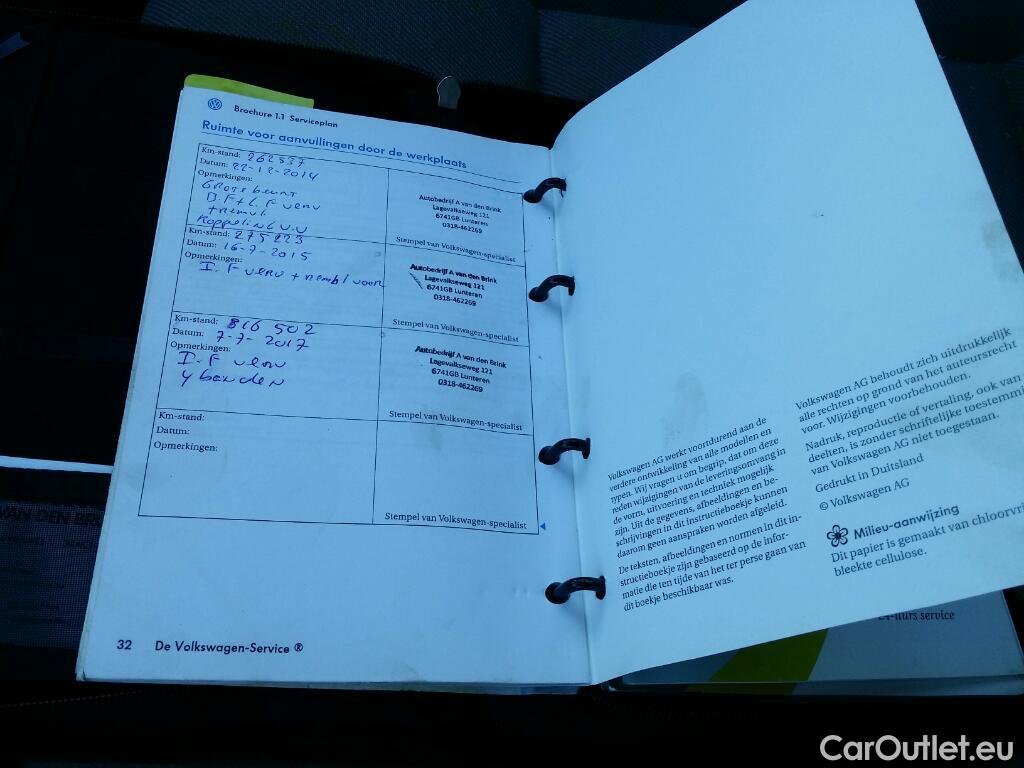 Brochure 1.1 Serviceplan
Ruimte voor aanvullingen door de werkplaats
Km-stand: 262537
Datum: 22-12-2014
Opmerkingen:
Grote beurt
B.F + L.F verv
Koppeling V.V
Autobedrijf A van den Brink
Lagevalkseweg 121
6741GB Lunteren
0318-462269
Stempel van Volkswagen-specialist
Km-stand: 275223
Datum: 16-7-2015
Opmerkingen:
I. F verv + rembl voor
Autobedrijf A van den Brink
Lagevalkseweg 121
6741GB Lunteren
0318-462269
Stempel van Volkswagen-specialist
Km-stand: 316 502
Datum: 7-7-2017
Opmerkingen:
I. F verv
4 banden
Autobedrijf A van den Brink
Lagevalkseweg 121
6741GB Lunteren
0318-462269
Stempel van Volkswagen-specialist
Km-stand:
Datum:
Opmerkingen:
Stempel van Volkswagen-specialist
32 De Volkswagen-Service ®
Volkswagen AG werkt voortdurend aan de
verdere ontwikkeling van alle modellen en
typen. Wij vragen u om begrip, dat om deze
reden wijzigingen van de leveringsomvang in
de vorm, uitvoering en techniek mogelijk
zijn. Uit de gegevens, afbeeldingen en be-
schrijvingen in dit instructieboekje kunnen
daarom geen aanspraken worden afgeleid.
De teksten, afbeeldingen en normen in dit in-
structieboekje zijn gebaseerd op de infor-
matie die ten tijde van het ter perse gaan van
dit boekje beschikbaar was.
Volkswagen AG behoudt zich uitdrukkelijk
alle rechten op grond van het auteursrecht
voor. Wijzigingen voorbehouden.
Nadruk, reproductie of vertaling, ook van
deelten, is zonder schriftelijke toestemmi
van Volkswagen AG niet toegestaan.
Gedrukt in Duitsland
© Volkswagen AG
Milieu-aanwijzing
Dit papier is gemaakt van chloorvri
bleekte cellulose.
24-uurs service
VAN DEN BR
CarOutlet.eu